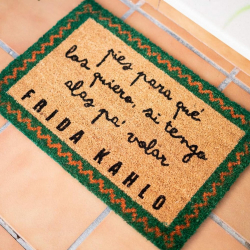 pies para qué
los quiero, si tengo
alas pa' volar
FRIDA KAHLO